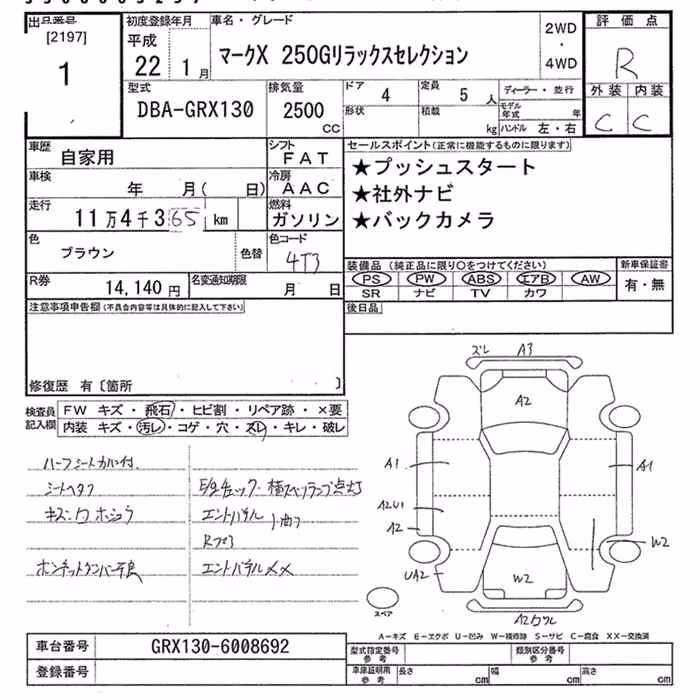 出品番号
[2197]
1
初度登録年月
平成
22 1月
車名・グレード
マークX 250Gリラックスセレクション
2WD
・
4WD
評価点
R
外装 内装
C C
型式
DBA-GRX130
排気量
2500
CC
ドア 4
定員 5 人
形状
積載
kg
ディーラー・並行
モデル年式 年
ハンドル 左・右
車歴
自家用
シフト
FAT
車検
年 月( 日)
冷房
AAC
走行
11万4千365 km
燃料
ガソリン
色
ブラウン
色替
色コード
4T3
R券
14,140円
名変通知期限
月 日
セールスポイント(正常に機能するものに限ります)
★プッシュスタート
★社外ナビ
★バックカメラ
装備品(純正品に限り○をつけてください)
新車保証書
PS PW ABS エアB AW
SR ナビ TV カワ
有・無
後日品
注意事項申告欄(不具合内容等は具体的に記入して下さい)
修復歴 有〔箇所 〕
検査員
記入欄
FW キズ・飛石・ヒビ割・リペア跡・×要
内装 キズ・汚レ・コゲ・穴・スレ・キレ・破レ
ハーフシートカバー付
シートヘタリ
ボンネットダンパー不良
エントパネル
エントパネルXX
ズレ A3
A2
A1
A1
A2U1
A2
W2
UA2
W2
スペア
A-キズ E-エクボ U-凹み W-補修跡 S-サビ C-腐食 XX-交換済
車台番号
GRX130-6008692
登録番号
型式指定番号
参考
類別区分番号
参考
車庫証明用
参考
長さ cm
幅 cm
高さ cm